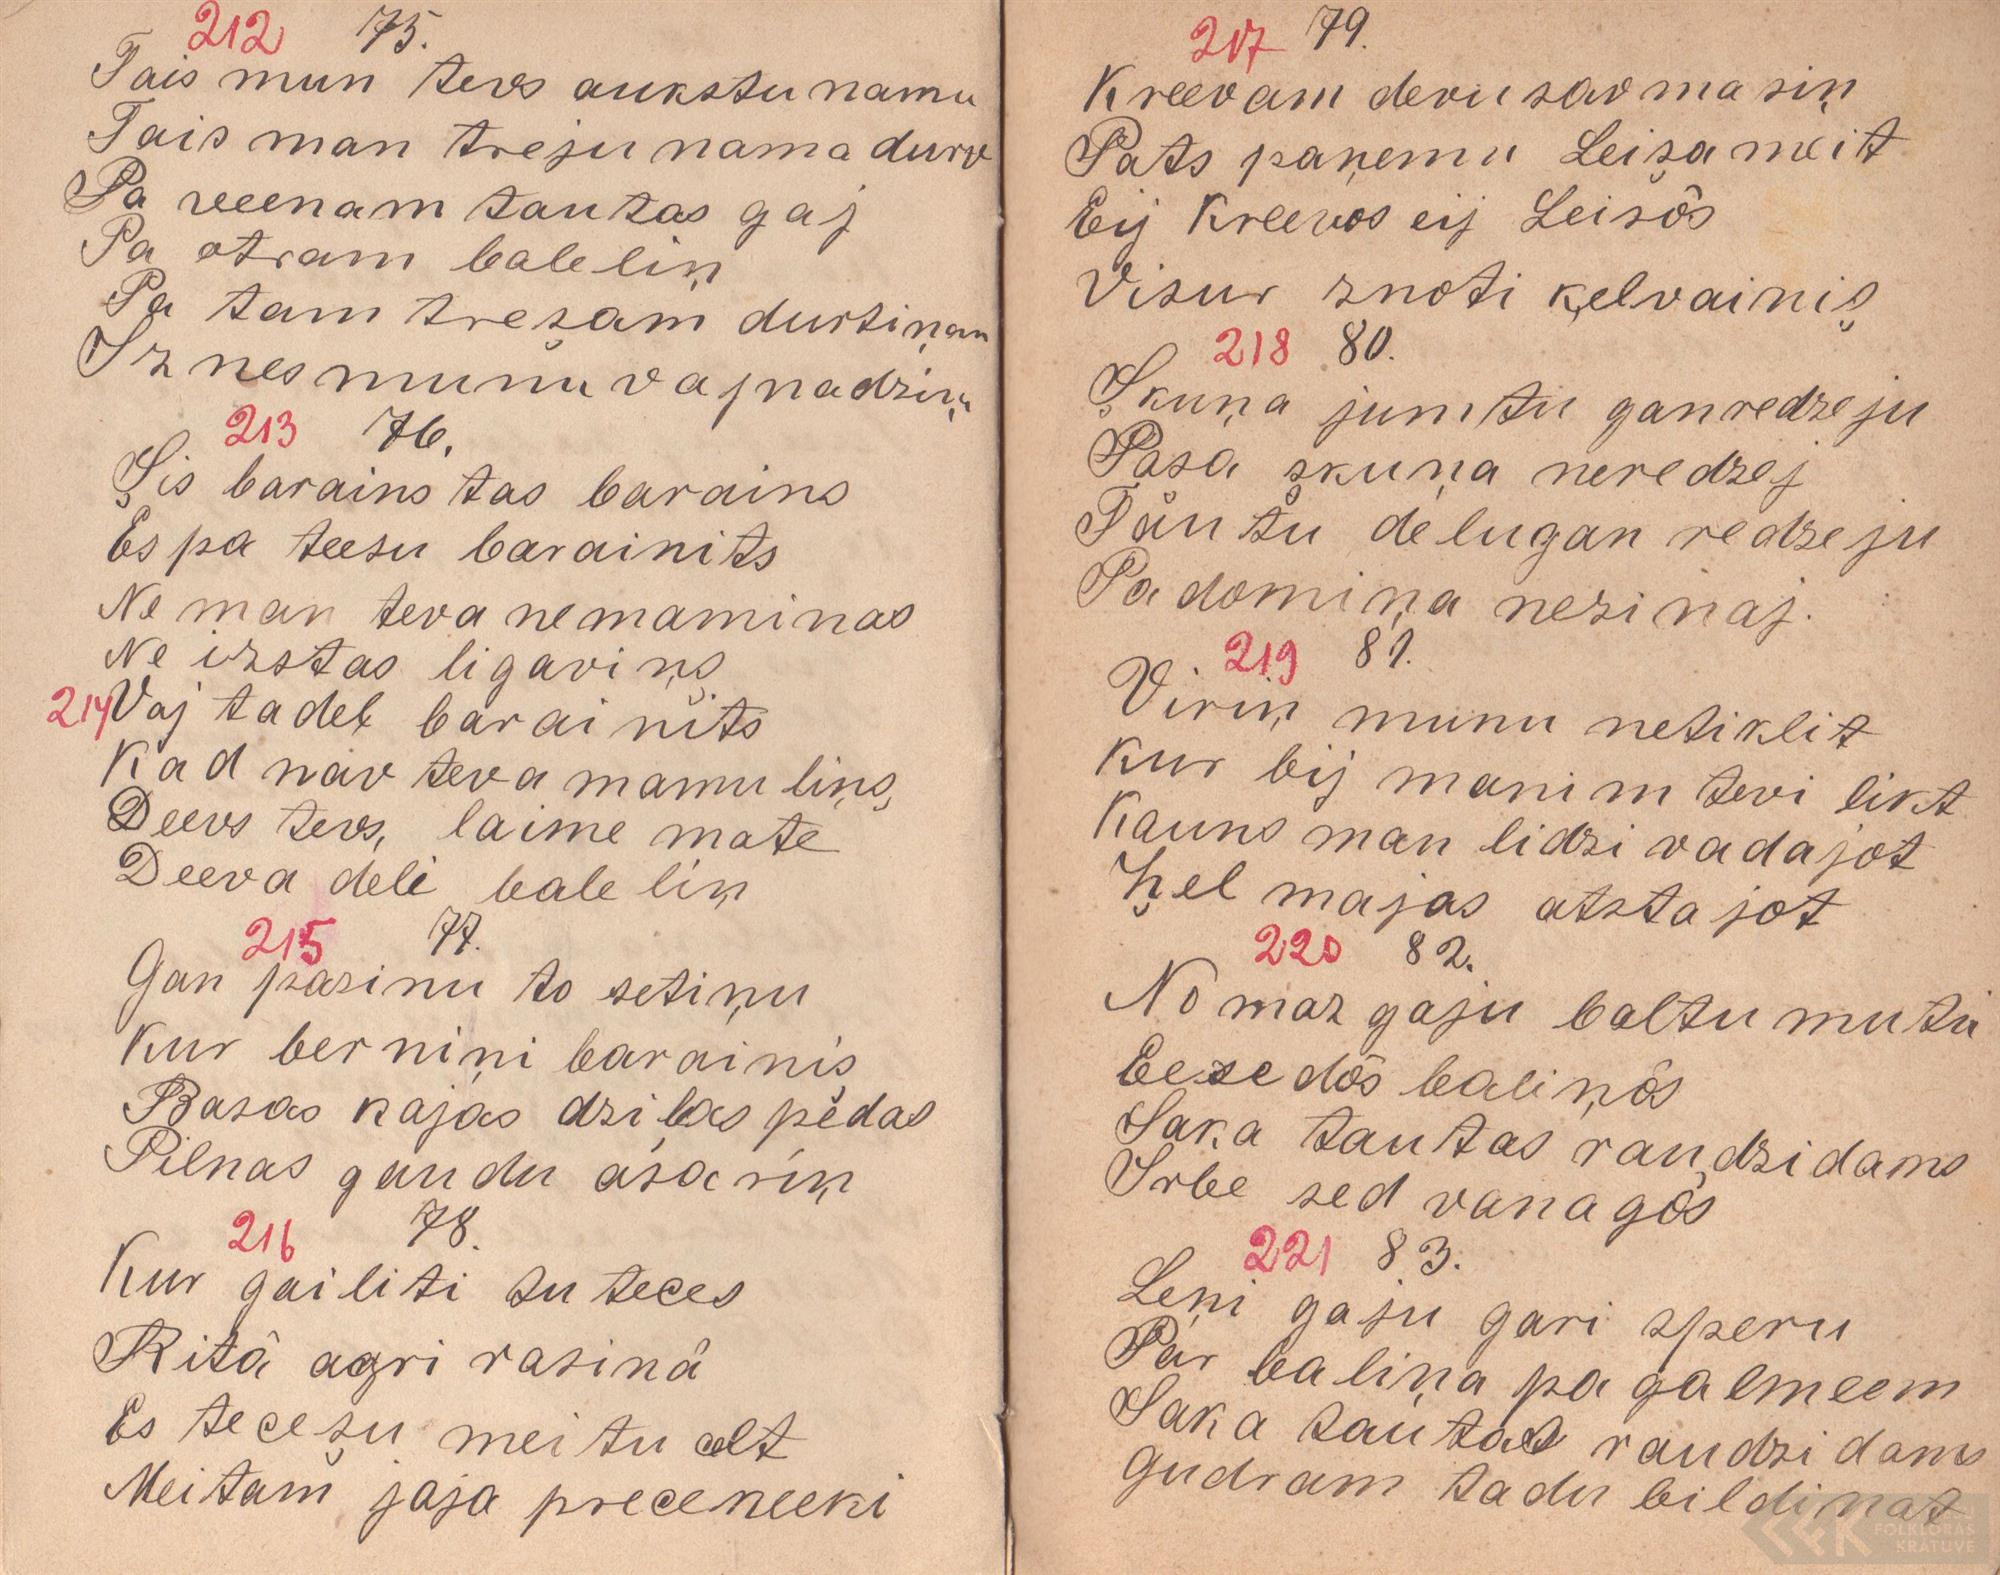 212 75.
Tais mun tevs aukstu namu
Tais man treju nama durv
Pa veenam tautas gaj
Pa otram baleliņ
Pa tam tresam durtiņam
Iz nes munu vajnadziņ
213 76.
Şis barains tas barains
Es pa teesu barainits
Ne man teva nemaminas
Ne izstas ligaviņş
214 Vaj tadeļ barainits
Kad nav teva mamuliņş,
Deevs tevs, laime mate
Deeva deli baleliņ
215 77.
Gan pazinu to setiņu
Kur berniņi barainiş
Basas kajas dziļas pêdas
Pilnas gaudu asariņ
216 78.
Kur gailiti tu teces
Ritâ agri rasinâ
Es teceşu meitu celt
Meitam jaja preceneeki
217 79.
Kreevam devu sav masiņ
Pats paņemu Leişa meit
Eij Kreevos eij Leişôs
Visur znoti ķelvainiş
218 80.
Şkuņa jumtu ganredzeju
Pasa şkuņa neredzej
Tâutu delugan redzeju
Padomiņa nezinaj.
219 81.
Viriņ munu netiklit
Kur bij manim tevi likt
Kauns man lidzi vadajot
Ẓel majas atstajot
220 82.
No mazgaju baltu muti
Eesedôs baliņôs
Saka tautas raudzidams
Irbe sed vanagôs
221 83.
Leņi gaju gari speru
Par baliņa pagalmeem
Saka tautas raudzidams
Gudram tadu bildinat
FOLKLORAS
KRATUVE